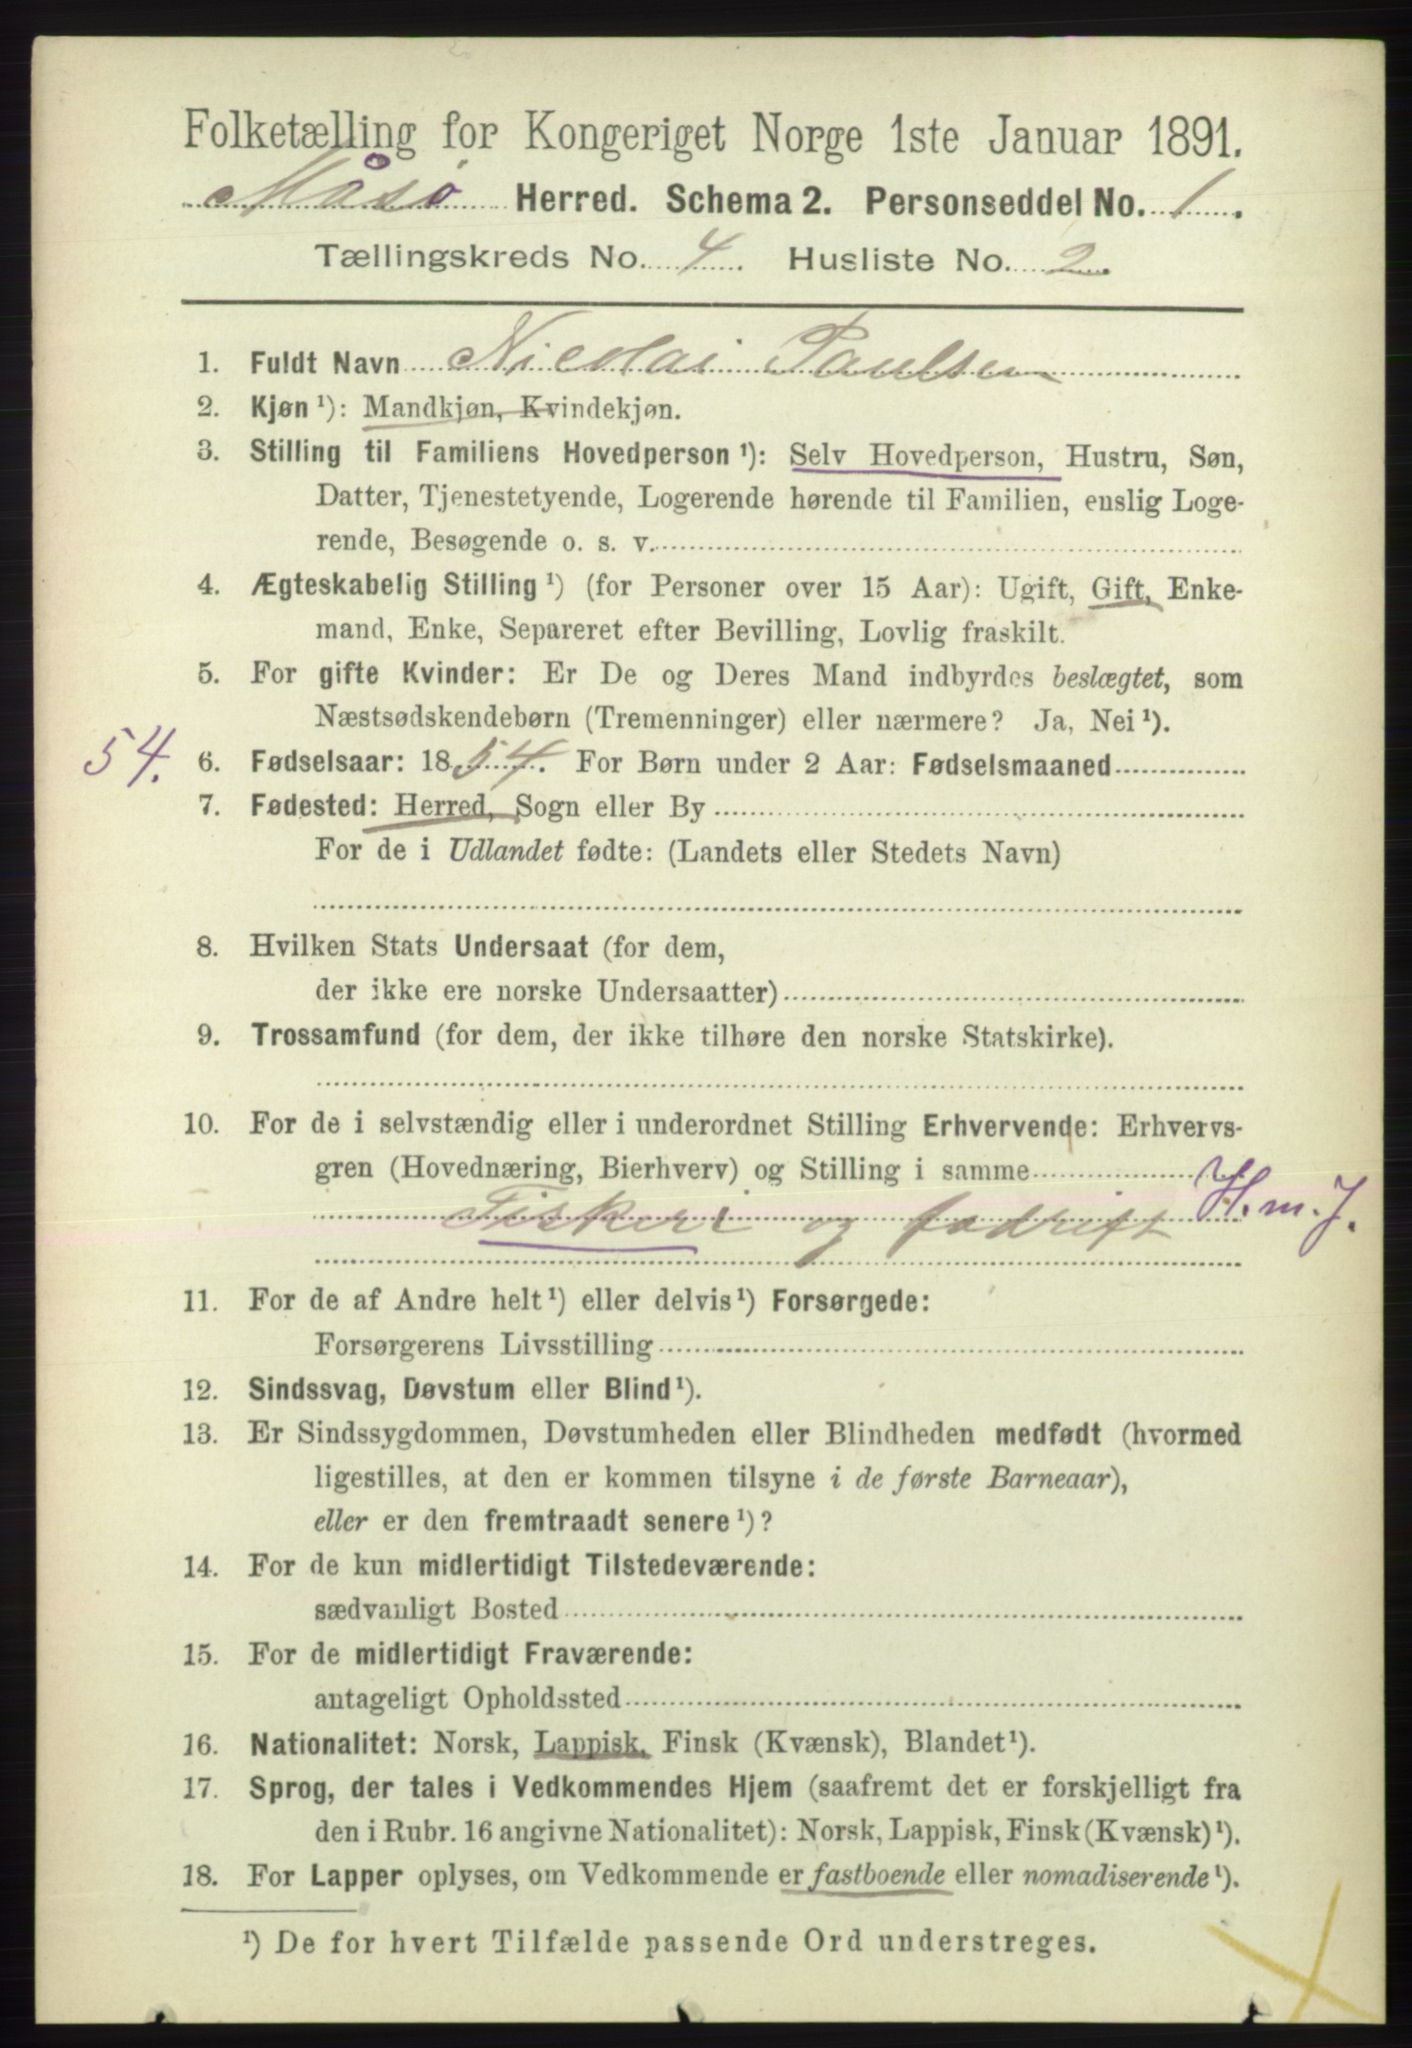 Folketælling for Kongeriget Norge 1ste Januar 1891.
Måsø Herred. Schema 2. Personseddel No. 1.
Tællingskreds No. 4. Husliste No. 2.
1. Fuldt Navn Nicolai Paulsen
2. Kjøn ¹): Mandkjøn, Kvindekjøn.
3. Stilling til Familiens Hovedperson ¹): Selv Hovedperson, Hustru, Søn,
Datter, Tjenestetyende, Logerende hørende til Familien, enslig Loge-
rende, Besøgende o. s. v.
4. Ægteskabelig Stilling ¹) (for Personer over 15 Aar): Ugift, Gift, Enke-
mand, Enke, Separeret efter Bevilling, Lovlig fraskilt.
5. For gifte Kvinder: Er De og Deres Mand indbyrdes beslægtet, som
Næstsødskendebørn (Tremenninger) eller nærmere? Ja, Nei ¹).
54. 6. Fødselsaar: 1854. For Børn under 2 Aar: Fødselsmaaned
7. Fødested: Herred, Sogn eller By
For de i Udlandet fødte: (Landets eller Stedets Navn)
8. Hvilken Stats Undersaat (for dem,
der ikke ere norske Undersaatter)
9. Trossamfund (for dem, der ikke tilhøre den norske Statskirke).
10. For de i selvstændig eller i underordnet Stilling Erhvervende: Erhvervs-
gren (Hovednæring, Bierhverv) og Stilling i samme
Fiskeri og fødrift H. m. J.
11. For de af Andre helt ¹) eller delvis ¹) Forsørgede:
Forsørgerens Livsstilling
12. Sindssvag, Døvstum eller Blind ¹).
13. Er Sindssygdommen, Døvstumheden eller Blindheden medfødt (hvormed
ligestilles, at den er kommen tilsyne i de første Barneaar),
eller er den fremtraadt senere ¹)?
14. For de kun midlertidigt Tilstedeværende:
sædvanligt Bosted
15. For de midlertidigt Fraværende:
antageligt Opholdssted
16. Nationalitet: Norsk, Lappisk, Finsk (Kvænsk), Blandet ¹).
17. Sprog, der tales i Vedkommendes Hjem (saafremt det er forskjelligt fra
den i Rubr. 16 angivne Nationalitet): Norsk, Lappisk, Finsk (Kvænsk) ¹).
18. For Lapper oplyses, om Vedkommende er fastboende eller nomadiserende ¹).
¹) De for hvert Tilfælde passende Ord understreges.